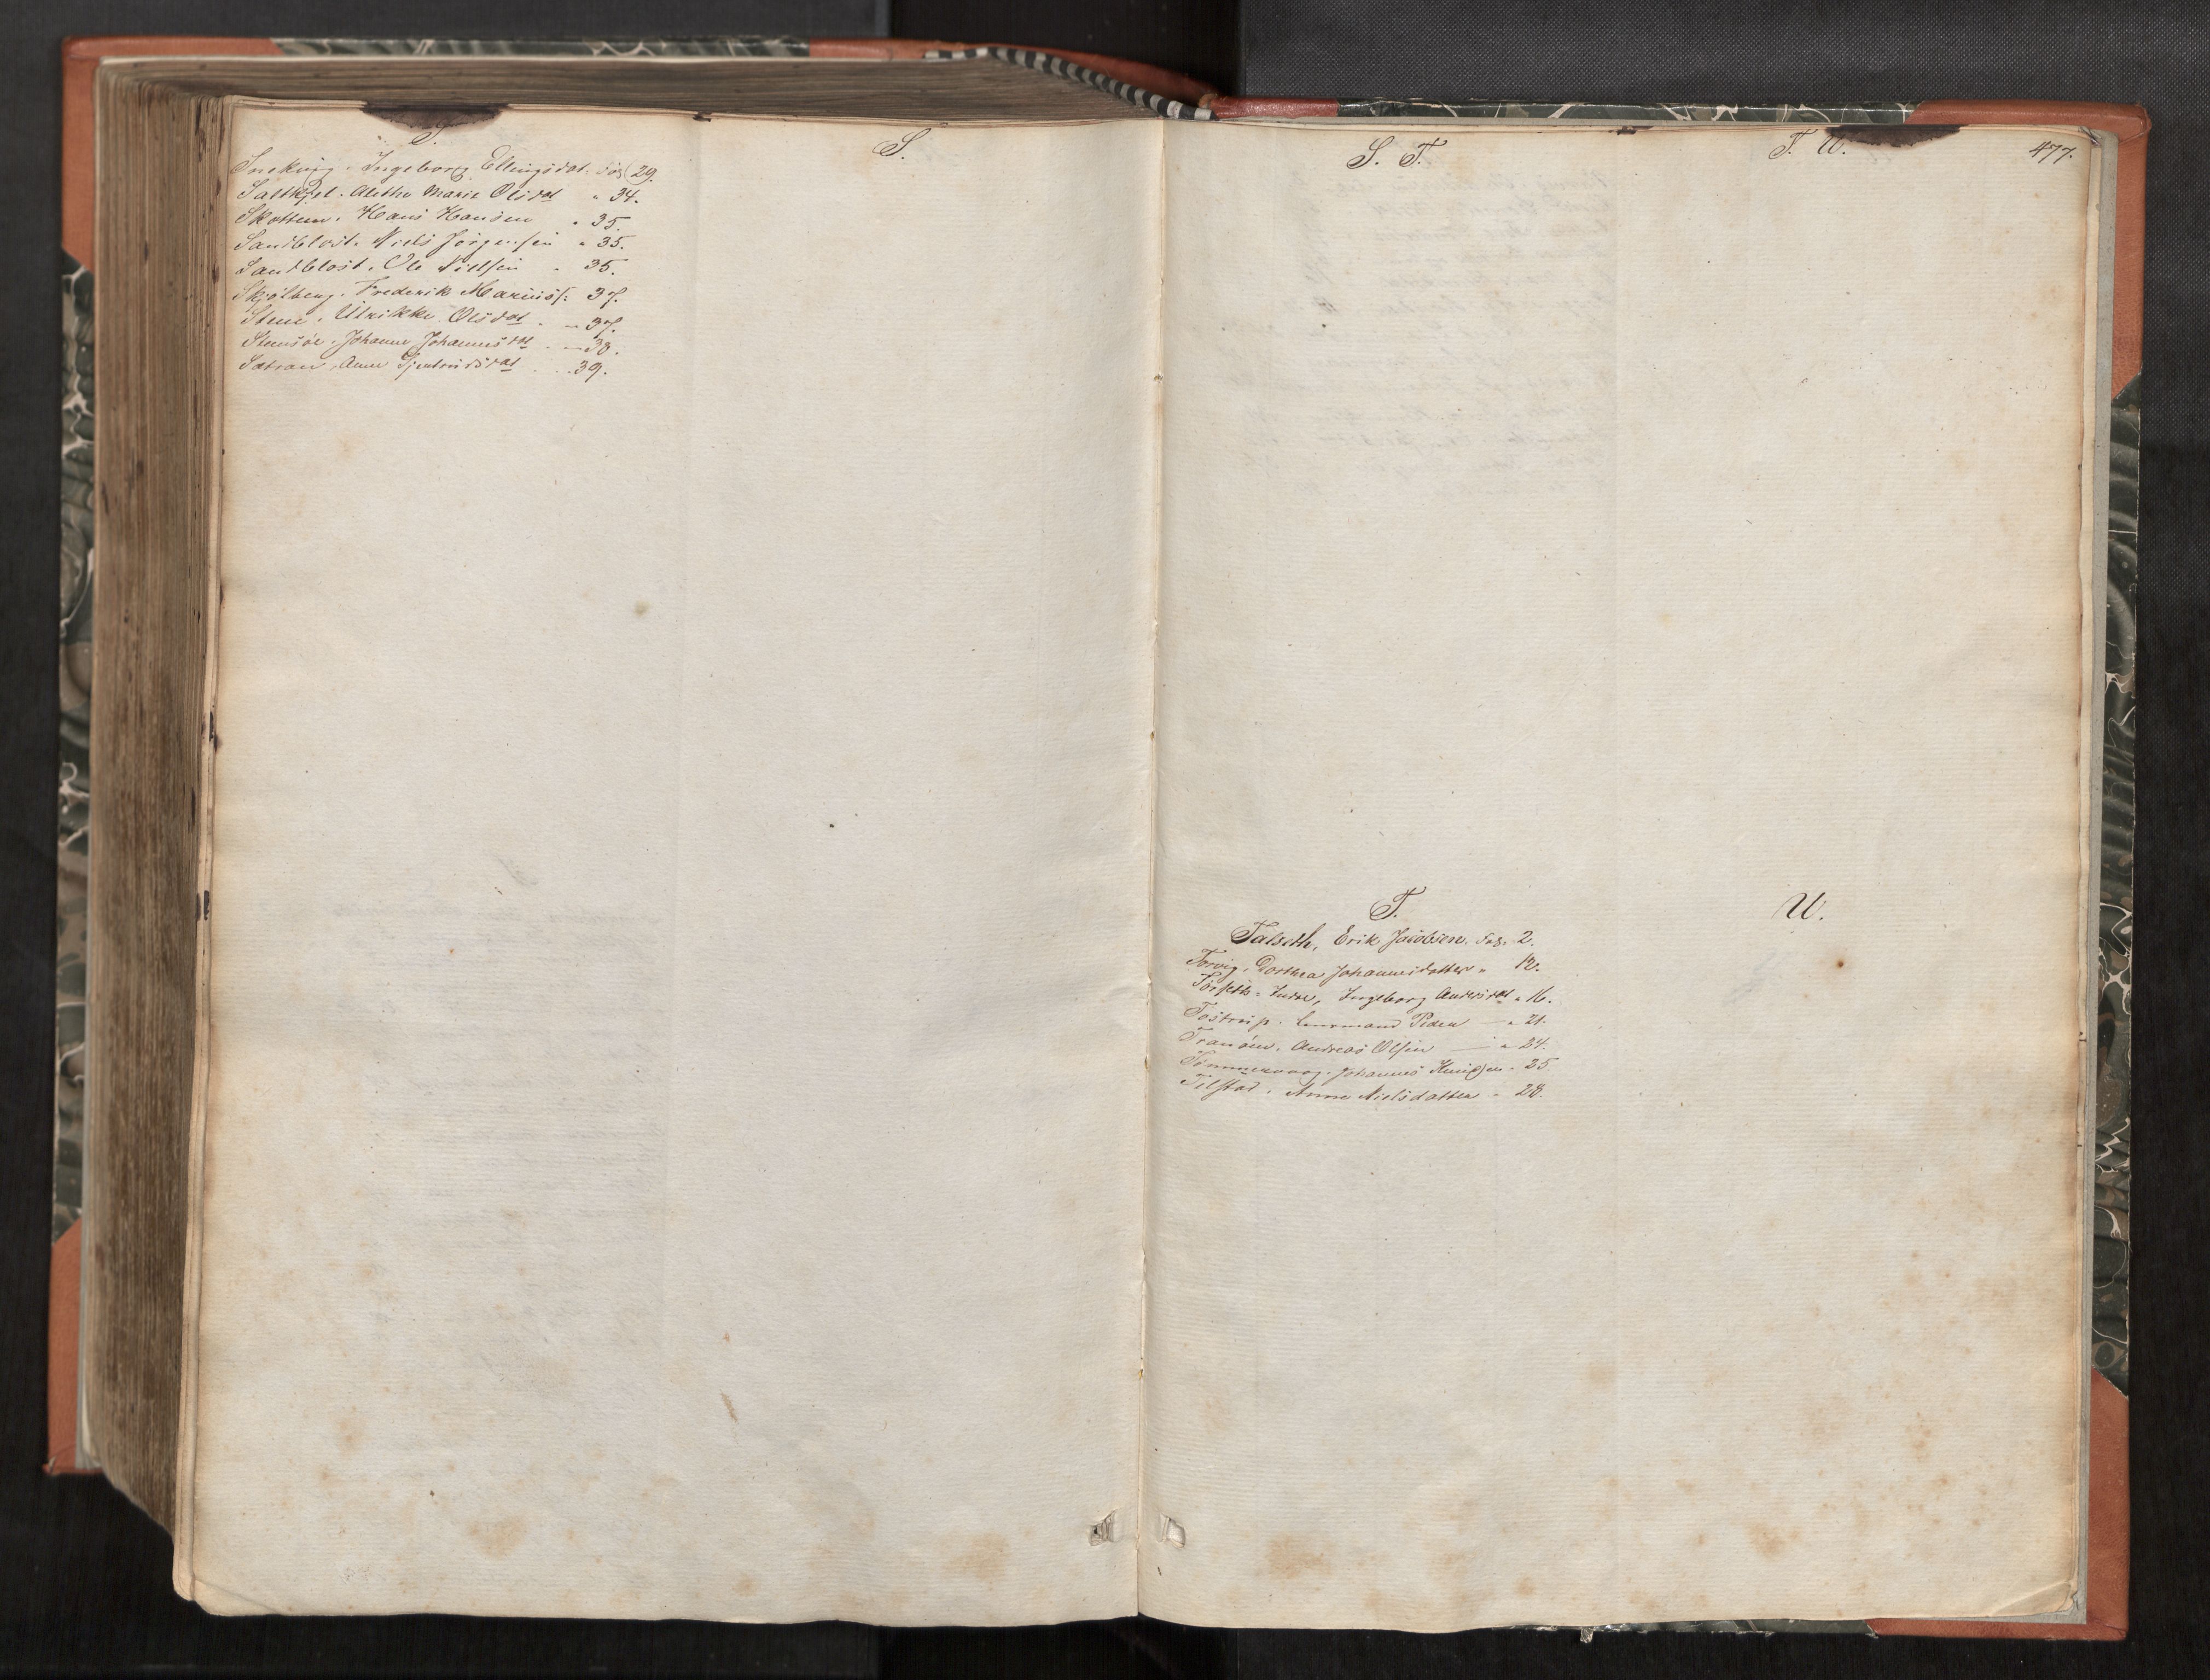 S.
Snekvig. Ingeborg Ellingsdat. Fol. 29.
Saltkjel. Alethe Marie Olsdat " 34.
Skottem. Hans Hansen " 35.
Sandblost. Niels Jörgensen " 35.
Sandblost. Ole Nielsen " 35.
Skjölberg. Frederik Marius 37.
Stene. Ulrikke Olsdat " 37.
Stensöe. Johanne Johannesdat 38.
Sætran. Anne 39.
S.
S. T.
T.
Talseth, Erik Jacobsen. Fol. 2.
Torvig. Dorthea Johannesdatter " 12.
Törseth. Indre, Ingeborg Andersdat " 16.
Tostrup. Peder " 21.
Tranöen. Andreas Olsen " 24.
Tömmervaag. Johannes 25.
Tilstad. Anne Nielsdatter " 28.
T. U.
477.
U.